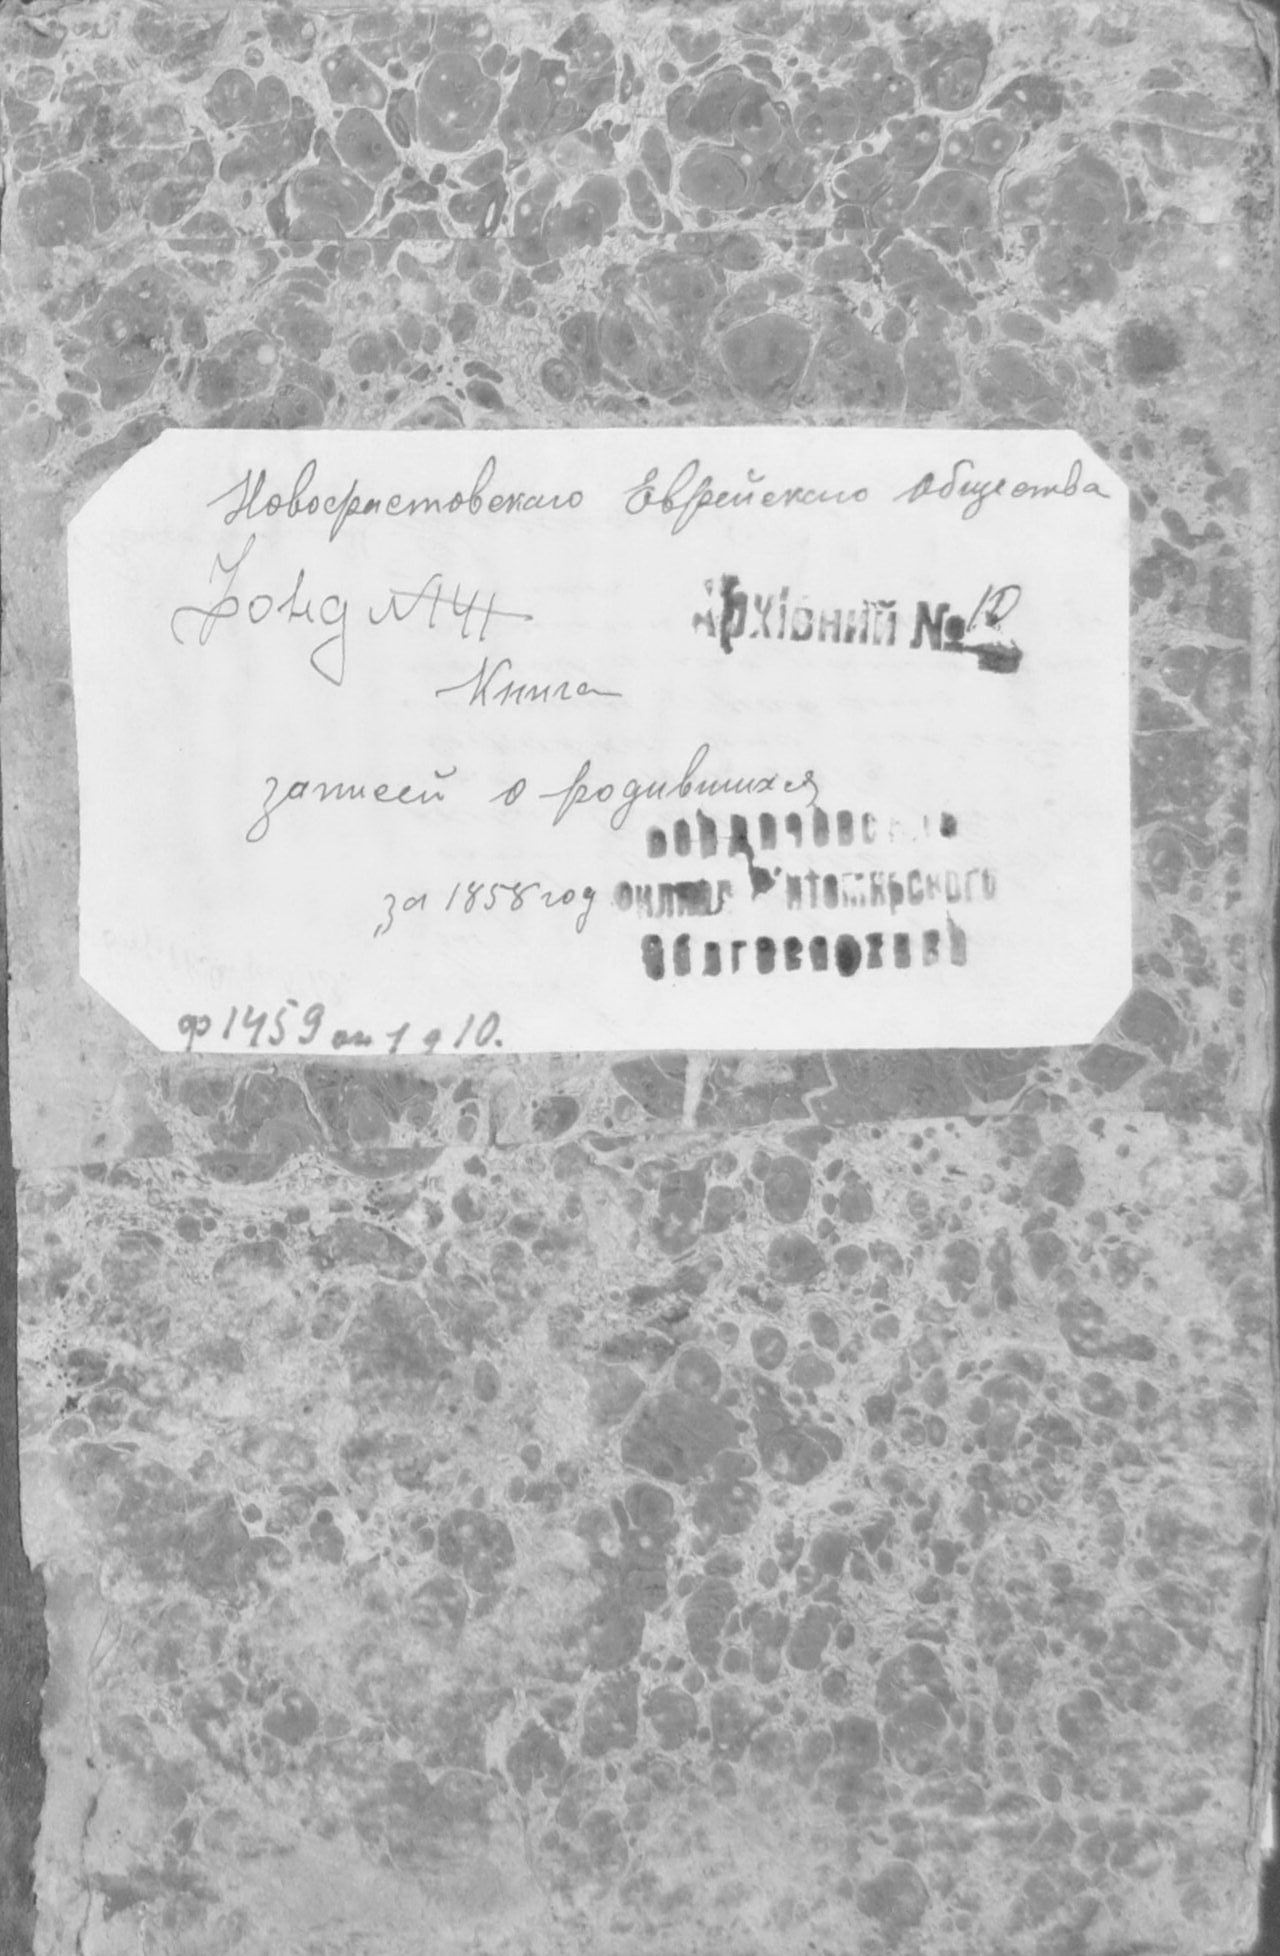 Новофастовскаго Еврейскаго Общества
Фонд № 141
Архівний № 10
Книга
записей о родившихся
за 1858 год
Бердичевского
филиал Житомирского
Облгосархива
ф 1459 оп 1 д 10.